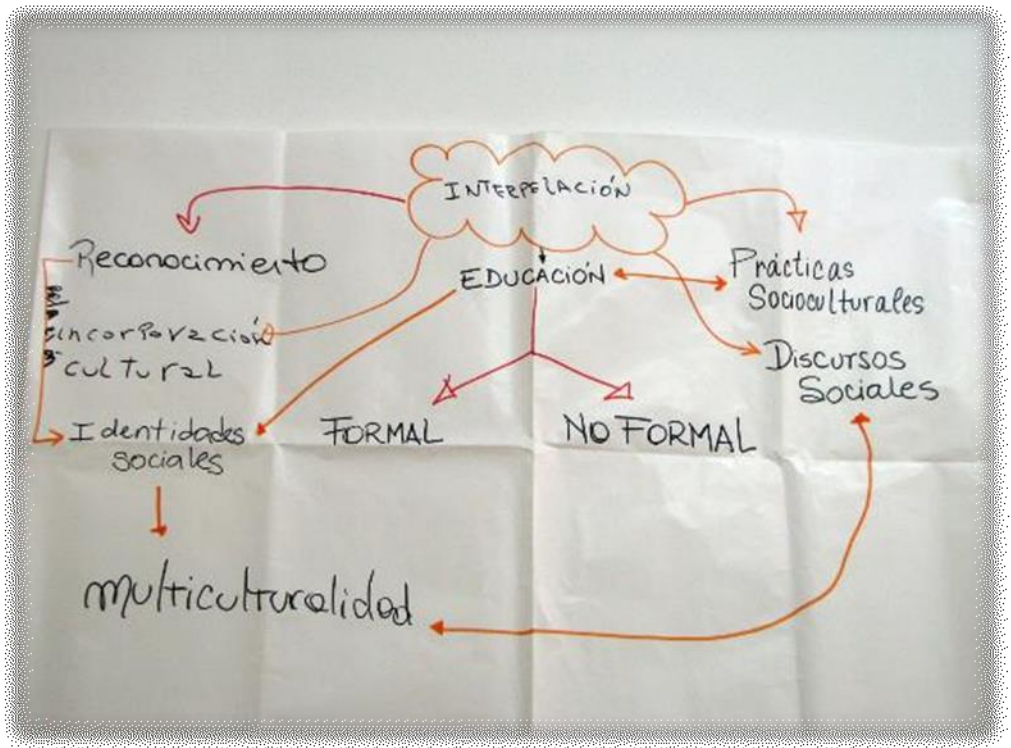 INTERPELACIÓN
Reconocimiento
EDUCACIÓN
Prácticas
Socioculturales
incorporación
cultural
Discursos
Sociales
Identidades
sociales
FORMAL
NO FORMAL
multiculturalidad